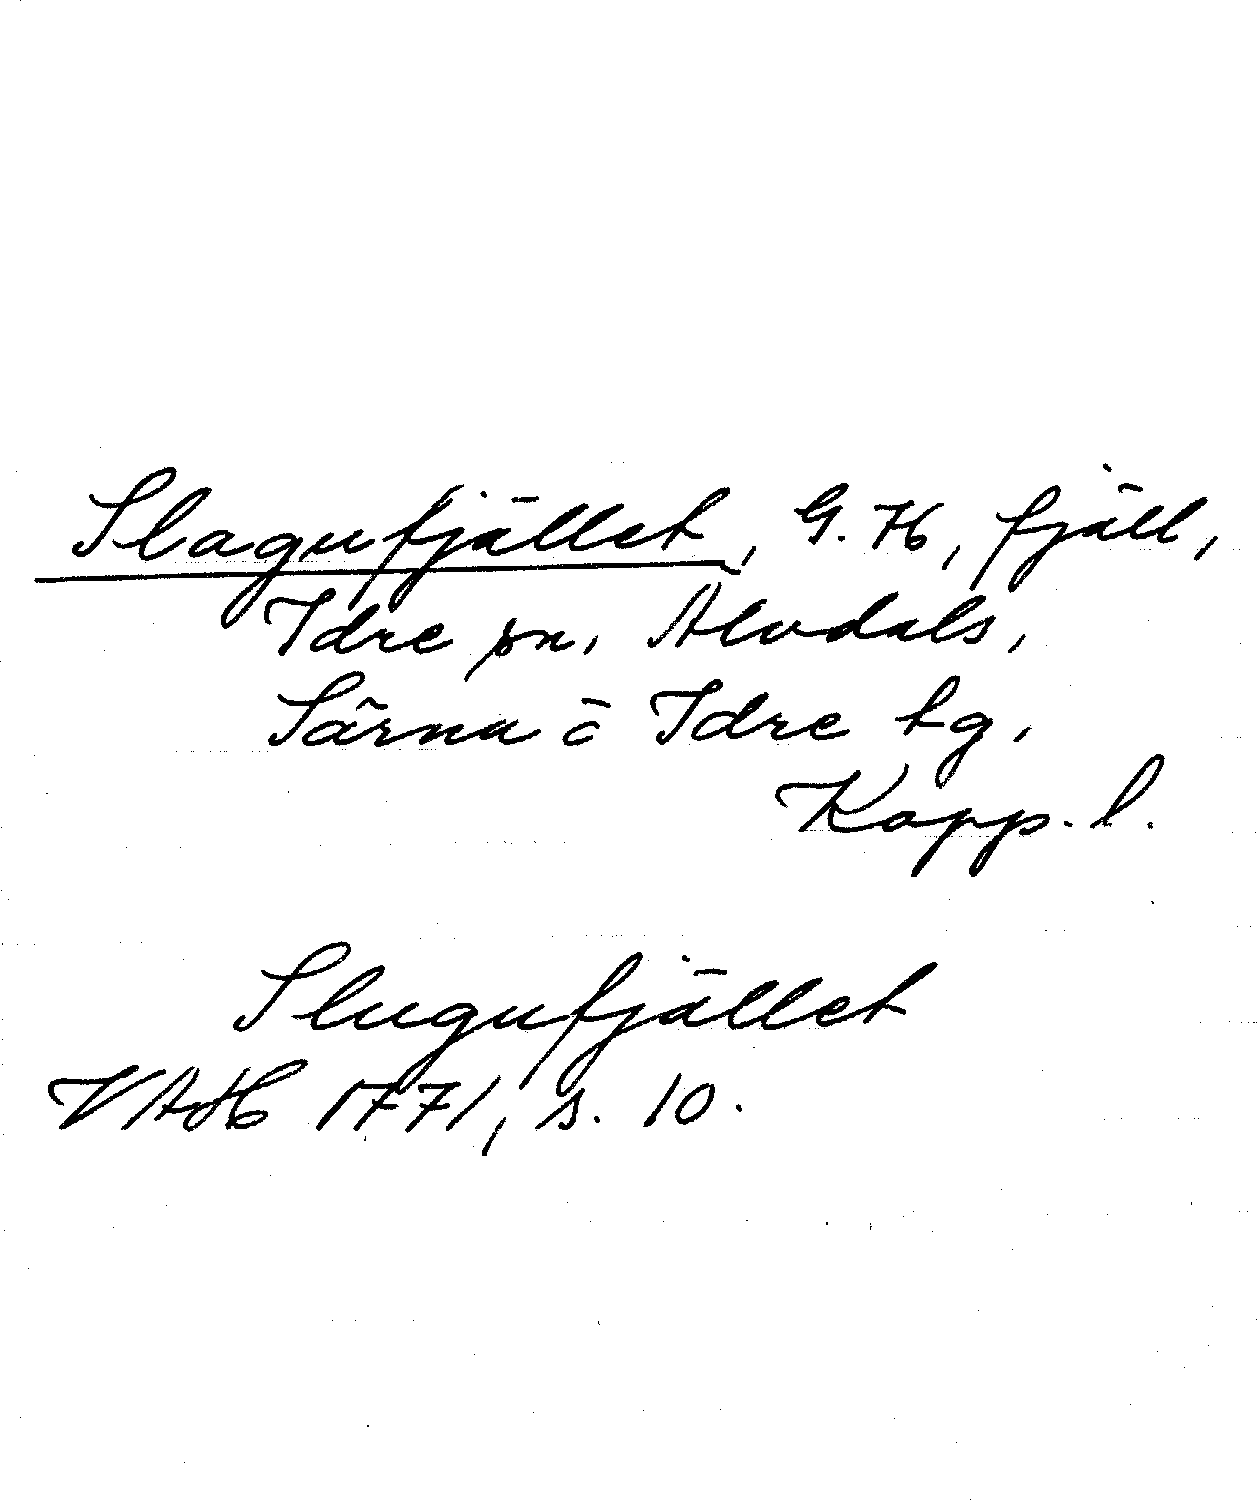 Slagufjället, G. H, fjäll,
Idre sn, Älvdals,
Särna ö Idre tg,
Kopp. l.
Slugufjället
VAH 1771, s. 10.